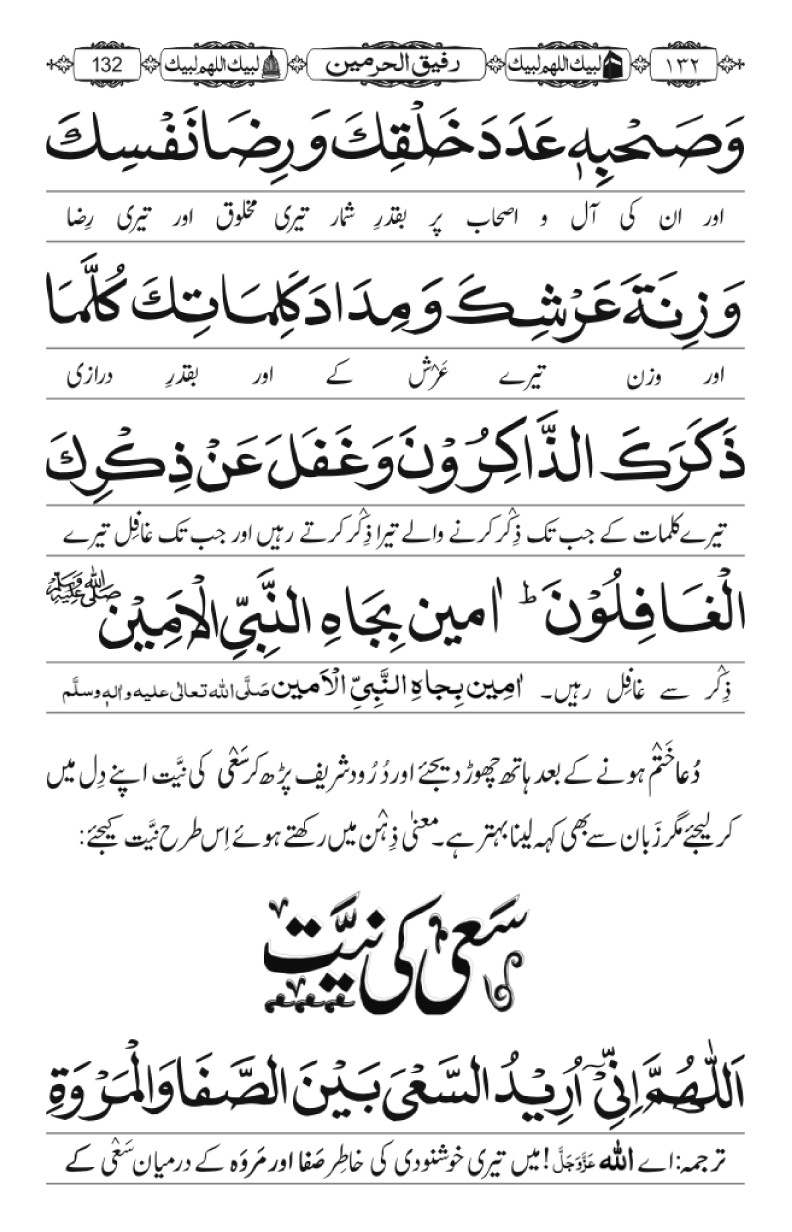 ١٣٢ لبیك اللهم لبیك رفیق الحرمین لبیك اللهم لبیك 132
وَصَحْبِهٖ عَدَدَ خَلْقِكَ وَرِضَا نَفْسِكَ
اور ان کی آل و اصحاب پر بقدرِ شمار تیری مخلوق اور تیری رِضا
وَزِنَةَ عَرْشِكَ وَمِدَادَ كَلِمَاتِكَ كُلَّمَا
اور وزن تیرے عَرْش کے اور بقدرِ درازی
ذَكَرَكَ الذَّاكِرُوْنَ وَغَفَلَ عَنْ ذِكْرِكَ
تیرے کلمات کے جب تک ذِکْر کرنے والے تیرا ذِکْر کرتے رہیں اور جب تک غافِل تیرے
الْغَافِلُوْنَ ؕ اٰمین بِجَاهِ النَّبِیِّ الْاَمِیْن صَلَّى اللهُ عَلَيْهِ وَسَلَّم
ذِکْر سے غافِل رہیں۔ اٰمِین بِجاہِ النَّبِیِّ الْاَمین صَلَّی اللہ تعالٰی علیہ واٰلہٖ وسلَّم
دُعا خَتْم ہونے کے بعد ہاتھ چھوڑ دیجئے اور دُرُود شریف پڑھ کر سَعْی کی نیَّت اپنے دِل میں
کر لیجئے مگر زَبان سے بھی کہہ لینا بہتر ہے۔ معنیٰ ذِہْن میں رکھتے ہوئے اِس طرح نیَّت کیجئے:
سَعْی کی نیَّت
اَللّٰهُمَّ اِنِّیْۤ اُرِیْدُ السَّعْیَ بَیْنَ الصَّفَا وَالْمَرْوَةِ
ترجمہ: اے اللہ عَزَّوَجَلَّ! میں تیری خوشنودی کی خاطِر صَفا اور مَروَہ کے درمیان سَعْی کے